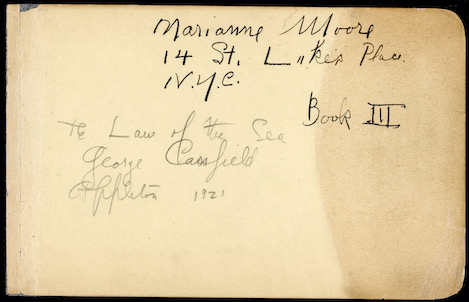 Marianne Moore
14 St. Luke's Place.
N.Y.C.
Book III
The Law of the Sea
George Canfield
Appleton 1921